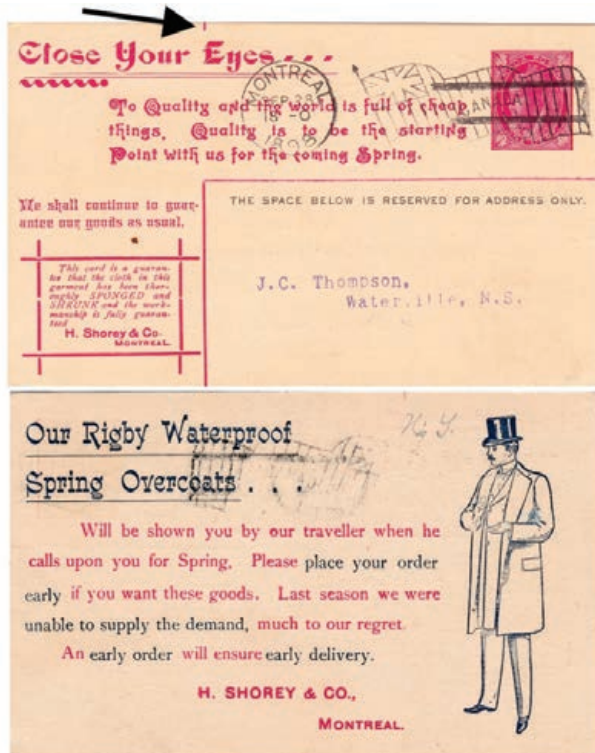 Close Your Eyes . . .
To Quality and the world is full of cheap
things. Quality is to be the starting
Point with us for the coming Spring.
MONTREAL
SEP 28
18 - 0
1898
CANADA
We shall continue to guar-
antee our goods as usual.
THE SPACE BELOW IS RESERVED FOR ADDRESS ONLY.
This card is a guaran-
tee that the cloth in this
garment has been thor-
oughly SPONGED and
SHRUNK and the work-
manship is fully guaran-
teed
H. Shorey & Co.
MONTREAL.
J.C. Thompson,
Waterville, N.S.
Our Rigby Waterproof
Spring Overcoats . . .
Will be shown you by our traveller when he
calls upon you for Spring. Please place your order
early if you want these goods. Last season we were
unable to supply the demand, much to our regret.
An early order will ensure early delivery.
H. SHOREY & CO.,
MONTREAL.